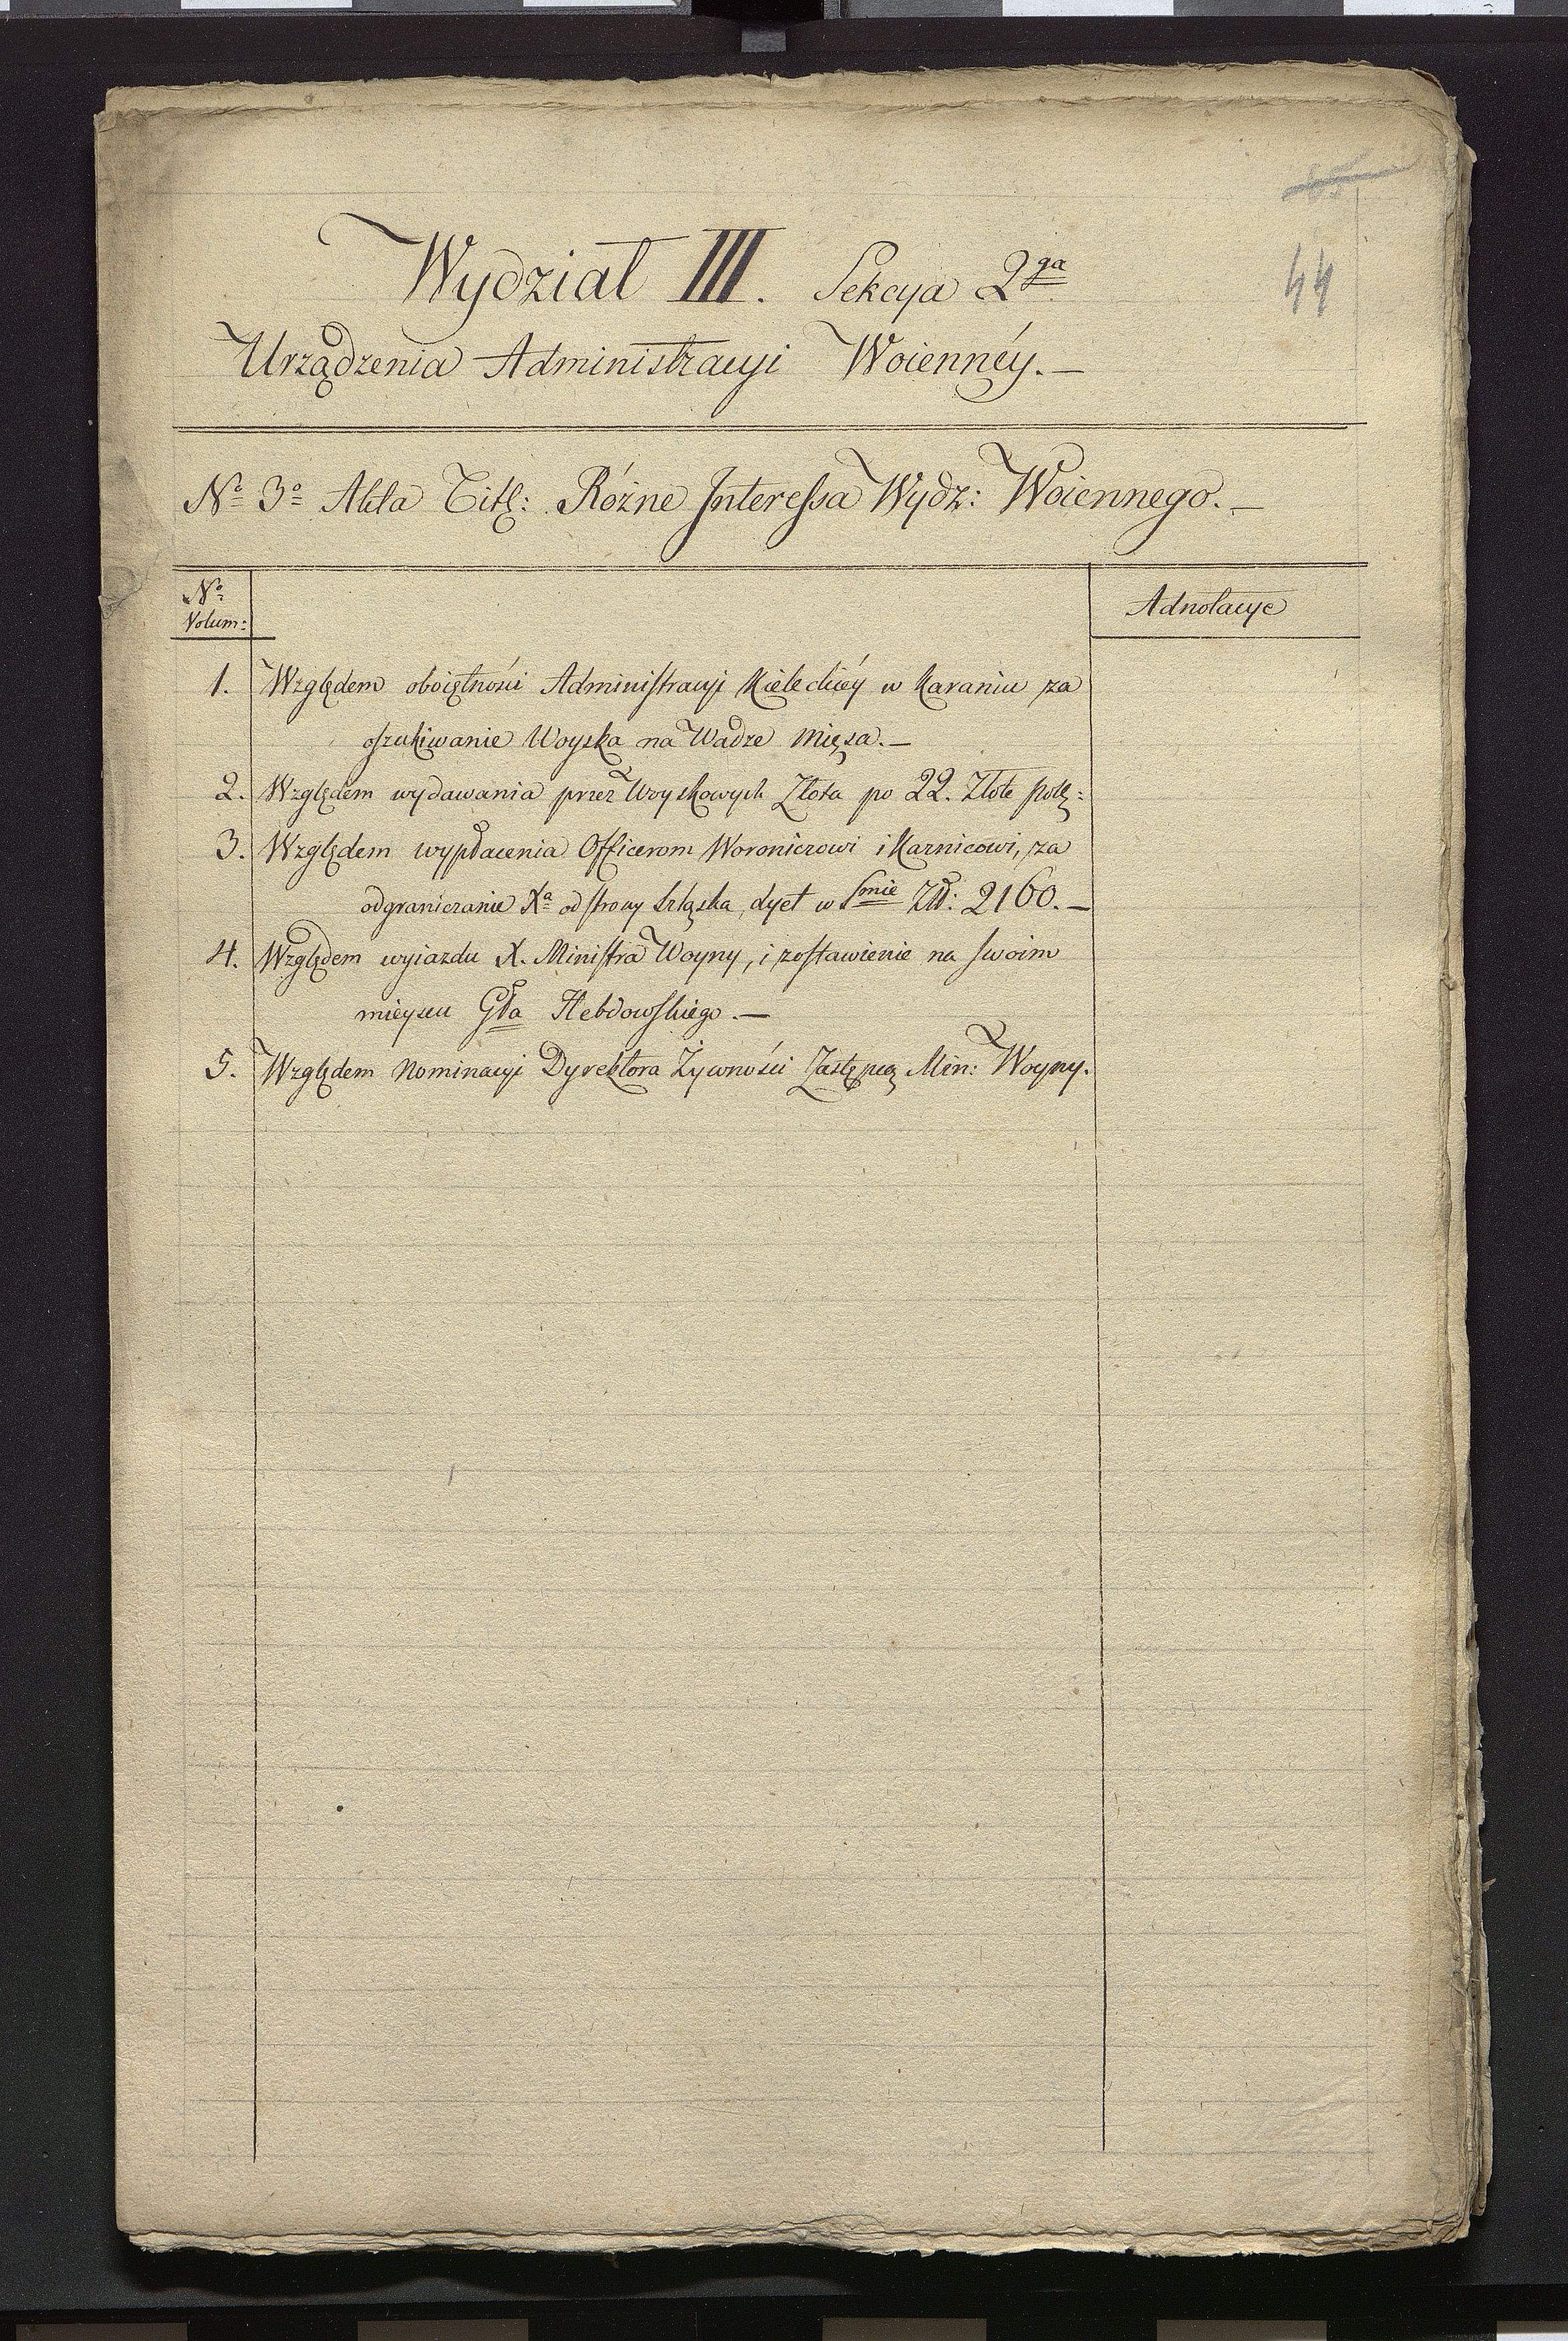 44
Wydział III. Sekcya 2ga
Urządzenia Administracyi Woiennéy.—
No 3o Akta Titł: Różne Interessa Wydz: Woiennego.—
No Volum:
Adnotacye
1. Względem oboiętności Administracyi Kieleckiéy w karaniu za
oszukiwanie Woyska na Wadze mięsa.—
2. Względem wydawania przez Woyskowych Złota po 22. Złote polę:
3. Względem wypłacenia Officerom Woroniczowi i Karnicowi, za
odgraniczanie Xa od strony Szląska, dyet w Smie Zł: 2160.—
4. Względem wyiazdu X. Ministra Woyny, i zostawienie na swoim
mieyscu Gła Hebdowskiego.—
5. Względem Nominacyi Dyrektora Żywności Zastępcą Min: Woyny.